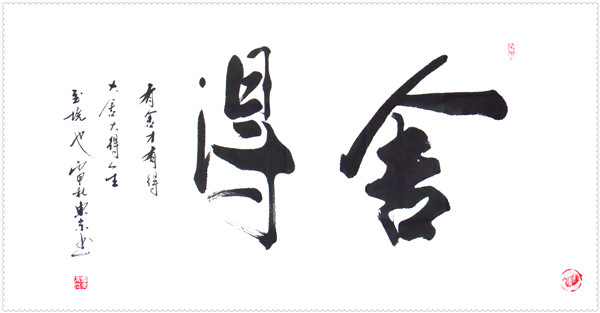 舍得
有舍才有得
大舍大得人生
至境也